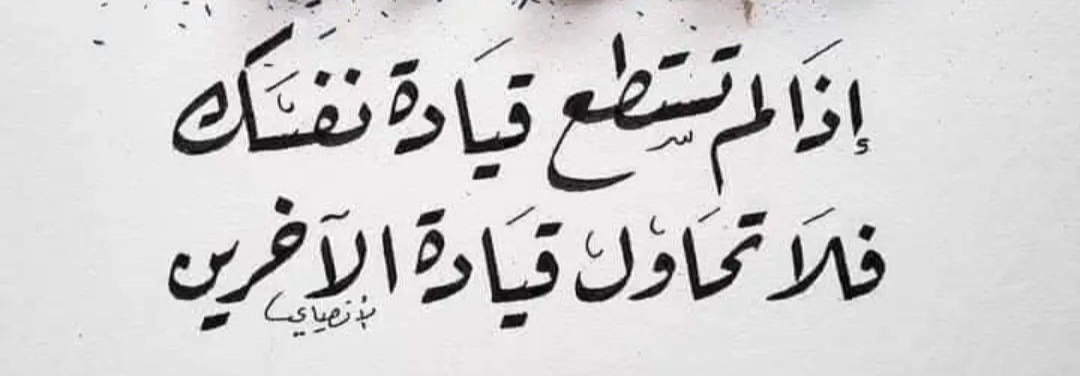 إذَا لم تستطع قيَادة نفسَك
فلَا تحَاول قيَادة الآخرين